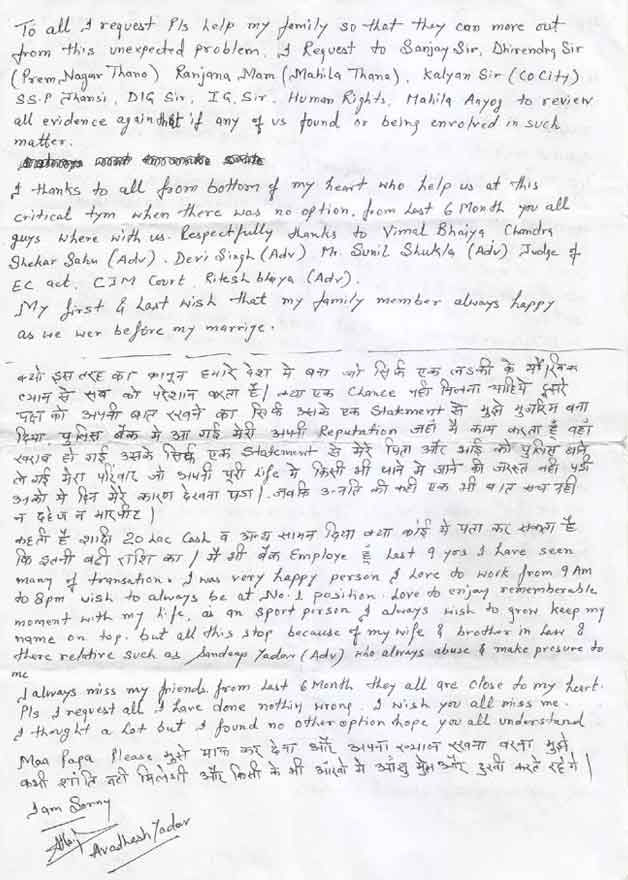 To all I request Pls help my family so that they can move out
from this unexpected problem. I Request to Sanjay Sir, Dhirendra Sir
(Prem Nagar Thana) Ranjana Mam (Mahila Thana), Kalyan Sir (CO City)
SS.P Jhansi, DIG Sir, IG, Sir. Human Rights, Mahila Aayog to review
all evidence again if any of us found or being envolved in such
matter.
I thanks to all from bottom of my heart who help us at this
critical tym when there was no option. from last 6 Month you all
guys where with us. Respectfully thanks to Vimal Bhaiya Chandra
Shekar Sahu (Adv). Devi Singh (Adv) Mr. Sunil Shukla (Adv) Judge of
EC act, CJM Court, Ritesh bhaiya (Adv).
My first & Last wish that my family member always happy
as we wer before my marrige.
क्यो इस तरह का कानून हमारे देश मे बना जो सिर्फ एक लडकी के
ब्यान से सब को परेशान करता है। क्या एक Chance नही मिलना चाहिये दूसरे
पक्ष को अपनी बात रखने का सिर्फ उसके एक Statment से मुझे मुजरिम बना
दिया. पुलिस बैंक मे आ गई मेरी अपनी Reputation जहाँ मै काम करता हूँ वहाँ
खराब हो गई उसके सिर्फ एक Statement से मेरे पिता और भाई को पुलिस थाने
ले गई मेरा परिवार जो अपनी पूरी Life मे किसी भी थाने मे जाने की जरूरत नही पडी
उनको ये दिन मेरे कारण देखना पडा। जबकि उन्नति की कही एक भी बात सच नही
न दहेज न मारपीट।
कहती है शादी 20 Lac Cash व अन्य सामन दिया क्या कोई ये पता कर सकता है
कि इतनी बडी राशि का। मै भी बैंक Employe हूँ Last 9 yrs I have seen
many of transation. I was very happy person I Love do work from 9 Am
to 8pm wish to always be at No. 1 position. Love to enjoy rememberable
moment with my life, as an sport person I always wish to grow keep my
name on top. but all this stop because of my wife & brother in Law &
there reletive such as Sandeep Yadav (Adv) who always abuse & make presure to
me
I always miss my friends. from Last 6 Month they all are close to my heart.
Pls I request all I have done nothin wrong. I wish you all miss me.
I thought a lot but I found no other option hope you all understand
Maa Papa Please मुझे माफ कर देना और अपना ख्याल रखना वरना मुझे
कभी शांति नही मिलेगी और किसी के भी आंखो मे आँसू मुझे और दुखी करते रहेगे।
I am Sorry
Avadhesh Yadav